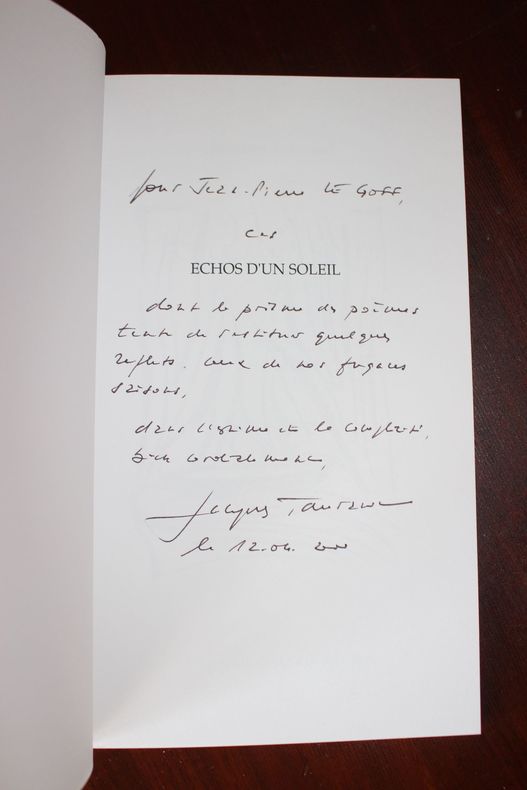 pour Jean-Pierre LE GOFF,
ces
ECHOS D'UN SOLEIL
dont le prisme des poèmes
tente de restituer quelques
reflets. ceux de nos fugaces
saisons,
dans l'estime et la complicité,
bien cordialement,
Jacques
le 12.04. 2000